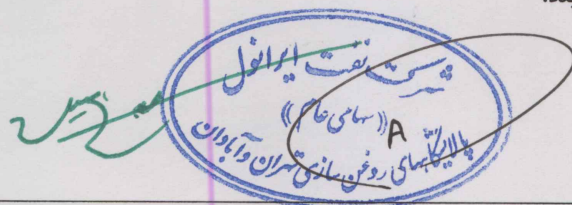 شرکت نفت ایرانول
((سهامی خاص))
A
پالایشگاههای روغن سازی تهران و آبادان